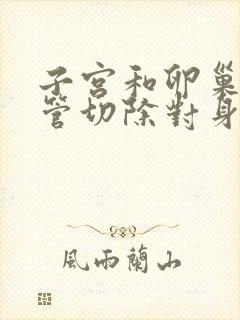 子宮和卵巢
管切除對身
風雨蘭山